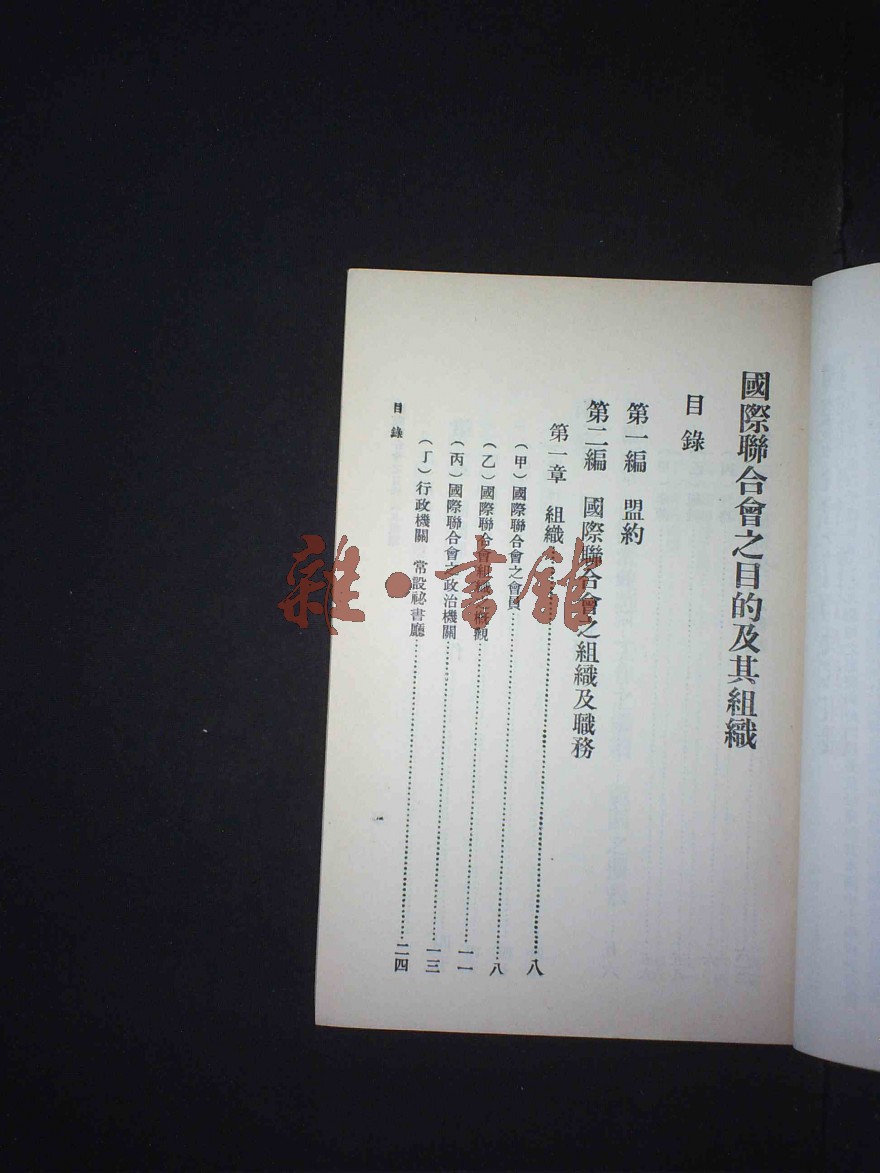 國際聯合會之目的及其組織
目錄
第一編 盟約
第二編 國際聯合會之組織及職務
第一章 組織……八
(甲)國際聯合會之會員……八
(乙)國際聯合會組織概觀……一一
(丙)國際聯合會之政治機關……一三
(丁)行政機關 常設祕書廳……二四
目錄
雜·書館